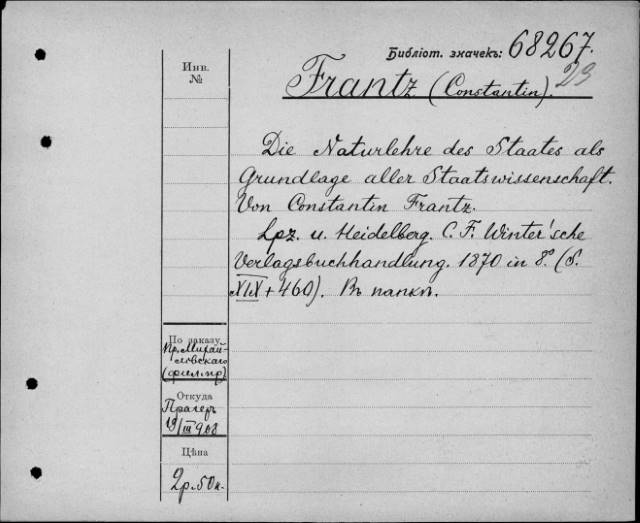 Библіот. значекъ: 68267.
23
Инв.
№
Frantz (Constantin).
Die Naturlehre des Staates als
Grundlage aller Staatswissenschaft.
Von Constantin Frantz.
Lpz. u. Heidelberg. C. F. Winter'sche
Verlagsbuchhandlung. 1870 in 8º. (S.
+ 460). Въ папкѣ.
По заказу
Пр. Михай-
ловскаго
Откуда
Прагеръ
19/III 908
Цѣна
2 р. 50 к.